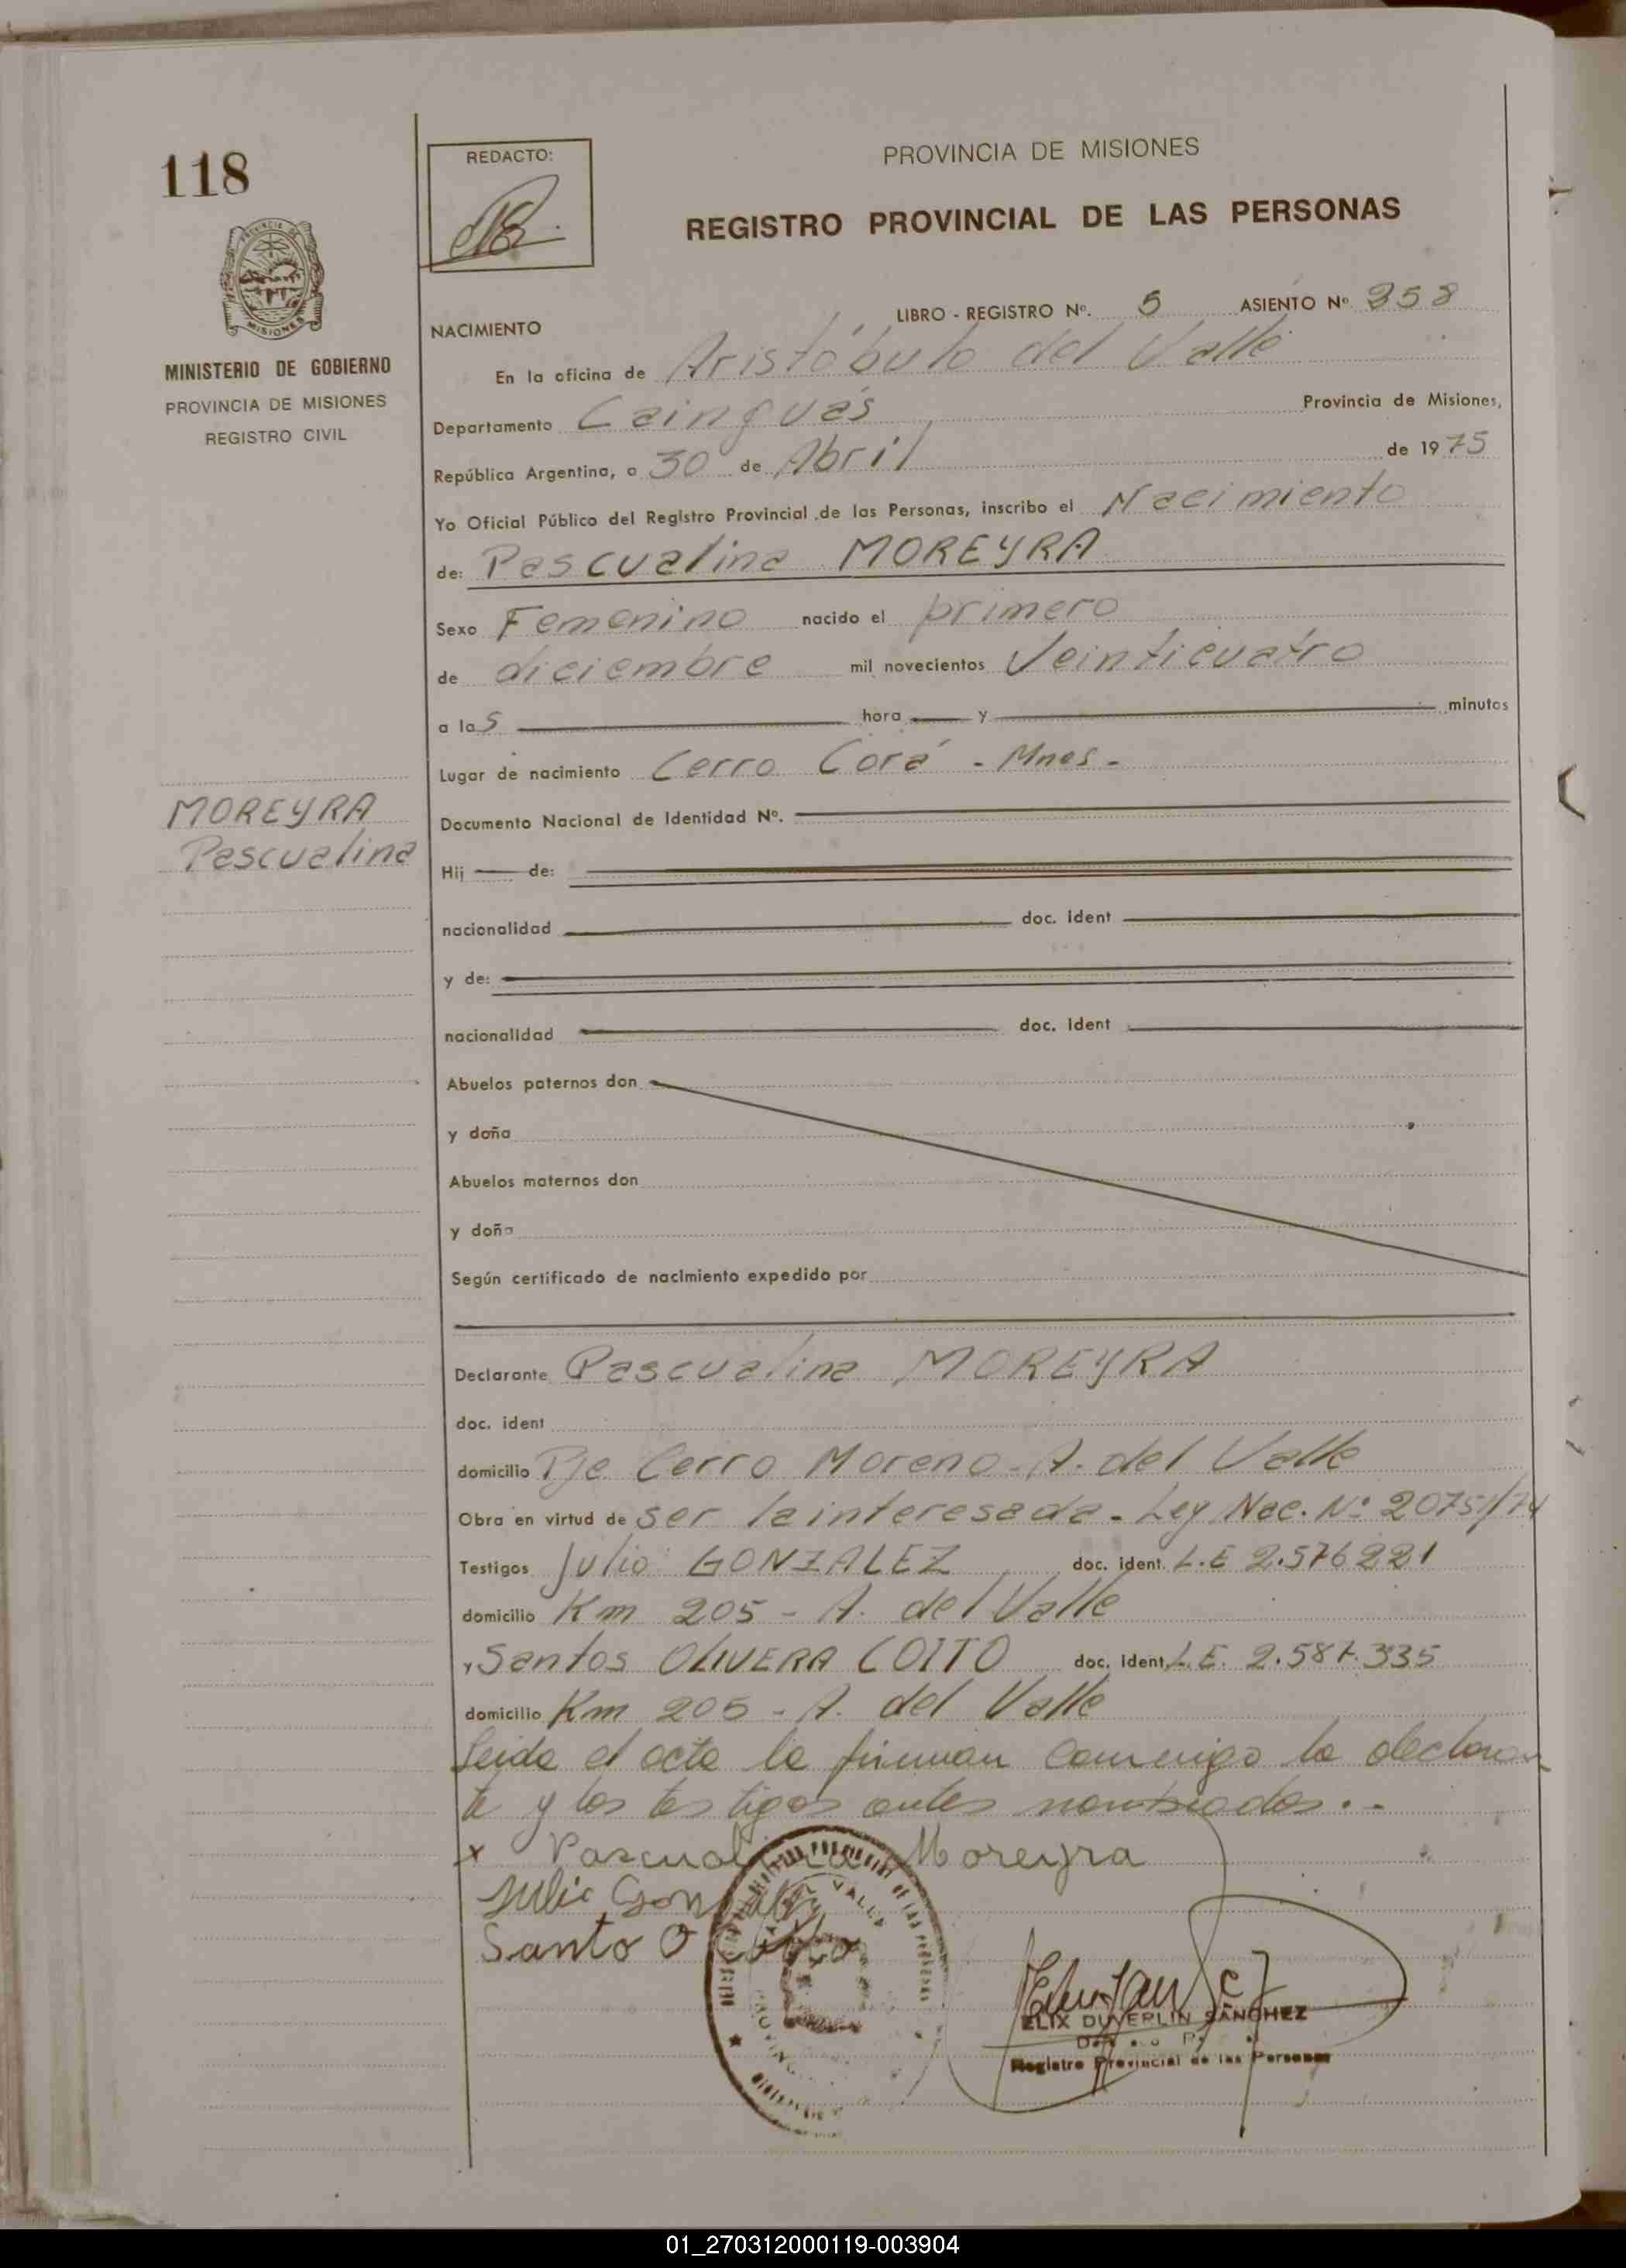 118
REDACTO:
PROVINCIA DE MISIONES
REGISTRO PROVINCIAL DE LAS PERSONAS
MISIONES
MINISTERIO DE GOBIERNO
PROVINCIA DE MISIONES
REGISTRO CIVIL
LIBRO - REGISTRO Nº. 5 ASIENTO Nº 358
NACIMIENTO
En la oficina de Aristóbulo del Valle
Departamento Cainguás Provincia de Misiones,
República Argentina, a 30 de Abril de 1975
Yo Oficial Público del Registro Provincial de las Personas, inscribo el Nacimiento
de: Pascualina MOREYRA
Sexo Femenino nacido el primero
de diciembre mil novecientos Veinticuatro
a las hora y minutos
Lugar de nacimiento Cerro Corá - Mnes -
MOREYRA
Pascualina
Documento Nacional de Identidad Nº.
Hij de:
nacionalidad doc. ident
y de:
nacionalidad doc. ident
Abuelos paternos don
y doña
Abuelos maternos don
y doña
Según certificado de nacimiento expedido por
Declarante Pascualina MOREYRA
doc. ident
domicilio Pje Cerro Moreno - A. del Valle
Obra en virtud de ser la interesada - Ley Nac. Nº 20751/74
Testigos Julio GONZALEZ doc. ident. L.E 2.576221
domicilio Km 205 - A. del Valle
y Santos OLIVERA COITO doc. ident. L.E. 2.587.335
domicilio Km 205 - A. del Valle
Leida el acta la firman conmigo la declaran
te y los testigos antes nombrados . -
x Pascualina Moreyra
Julio Gonzalez
Santo O Coito
VALLE
ELIX DUVERLIN SANCHEZ
Registro Provincial de las Personas
01_270312000119-003904